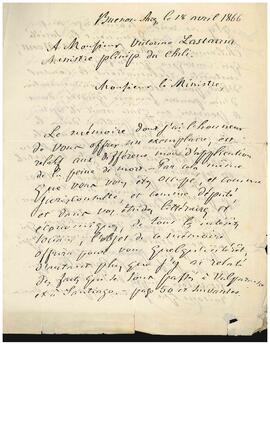 Buenos Ayres le 18 avril 1866
A Monsieur Victorino Lastarria
Ministre plénip du Chili.
Monsieur le Ministre,
Le mémoire dont j'ai l'honneur
de vous offrir un exemplaire, est
relatif aux différens modes d'application
de la peine de mort. Par cela même
que vous vous êtes occupé, et comme
jurisconsulte, et comme député
et dans vos études littéraires et
économiques, de tous les intérêts
sociaux, l'objet de ce mémoire
offrira pour vous quelqu'intérêt,
d'autant plus que j'y ai relaté
des faits qui se sont passés à Valparaiso
et à Santiago. - page 50 et suivantes.